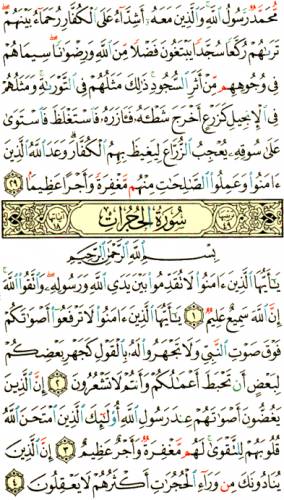 مُّحَمَّدٌ رَّسُولُ ٱللَّهِ وَٱلَّذِينَ مَعَهُۥٓ أَشِدَّآءُ عَلَى ٱلْكُفَّارِ رُحَمَآءُ بَيْنَهُمْ
تَرَىٰهُمْ رُكَّعًا سُجَّدًا يَبْتَغُونَ فَضْلًا مِّنَ ٱللَّهِ وَرِضْوَٰنًا سِيمَاهُمْ
فِى وُجُوهِهِم مِّنْ أَثَرِ ٱلسُّجُودِ ذَٰلِكَ مَثَلُهُمْ فِى ٱلتَّوْرَىٰةِ وَمَثَلُهُمْ
فِى ٱلْإِنجِيلِ كَزَرْعٍ أَخْرَجَ شَطْـَٔهُۥ فَـَٔازَرَهُۥ فَٱسْتَغْلَظَ فَٱسْتَوَىٰ
عَلَىٰ سُوقِهِۦ يُعْجِبُ ٱلزُّرَّاعَ لِيَغِيظَ بِهِمُ ٱلْكُفَّارَ وَعَدَ ٱللَّهُ ٱلَّذِينَ
ءَامَنُوا۟ وَعَمِلُوا۟ ٱلصَّـٰلِحَـٰتِ مِنْهُم مَّغْفِرَةً وَأَجْرًا عَظِيمًۢا ٢٩
سُورَةُ الْحُجُرَاتِ
بِسْمِ ٱللَّهِ ٱلرَّحْمَـٰنِ ٱلرَّحِيمِ
يَـٰٓأَيُّهَا ٱلَّذِينَ ءَامَنُوا۟ لَا تُقَدِّمُوا۟ بَيْنَ يَدَىِ ٱللَّهِ وَرَسُولِهِۦ وَٱتَّقُوا۟ ٱللَّهَ
إِنَّ ٱللَّهَ سَمِيعٌ عَلِيمٌ ١ يَـٰٓأَيُّهَا ٱلَّذِينَ ءَامَنُوا۟ لَا تَرْفَعُوٓا۟ أَصْوَٰتَكُمْ
فَوْقَ صَوْتِ ٱلنَّبِىِّ وَلَا تَجْهَرُوا۟ لَهُۥ بِٱلْقَوْلِ كَجَهْرِ بَعْضِكُمْ
لِبَعْضٍ أَن تَحْبَطَ أَعْمَـٰلُكُمْ وَأَنتُمْ لَا تَشْعُرُونَ ٢ إِنَّ ٱلَّذِينَ
يَغُضُّونَ أَصْوَٰتَهُمْ عِندَ رَسُولِ ٱللَّهِ أُو۟لَـٰٓئِكَ ٱلَّذِينَ ٱمْتَحَنَ ٱللَّهُ
قُلُوبَهُمْ لِلتَّقْوَىٰ لَهُم مَّغْفِرَةٌ وَأَجْرٌ عَظِيمٌ ٣ إِنَّ ٱلَّذِينَ
يُنَادُونَكَ مِن وَرَآءِ ٱلْحُجُرَٰتِ أَكْثَرُهُمْ لَا يَعْقِلُونَ ٤